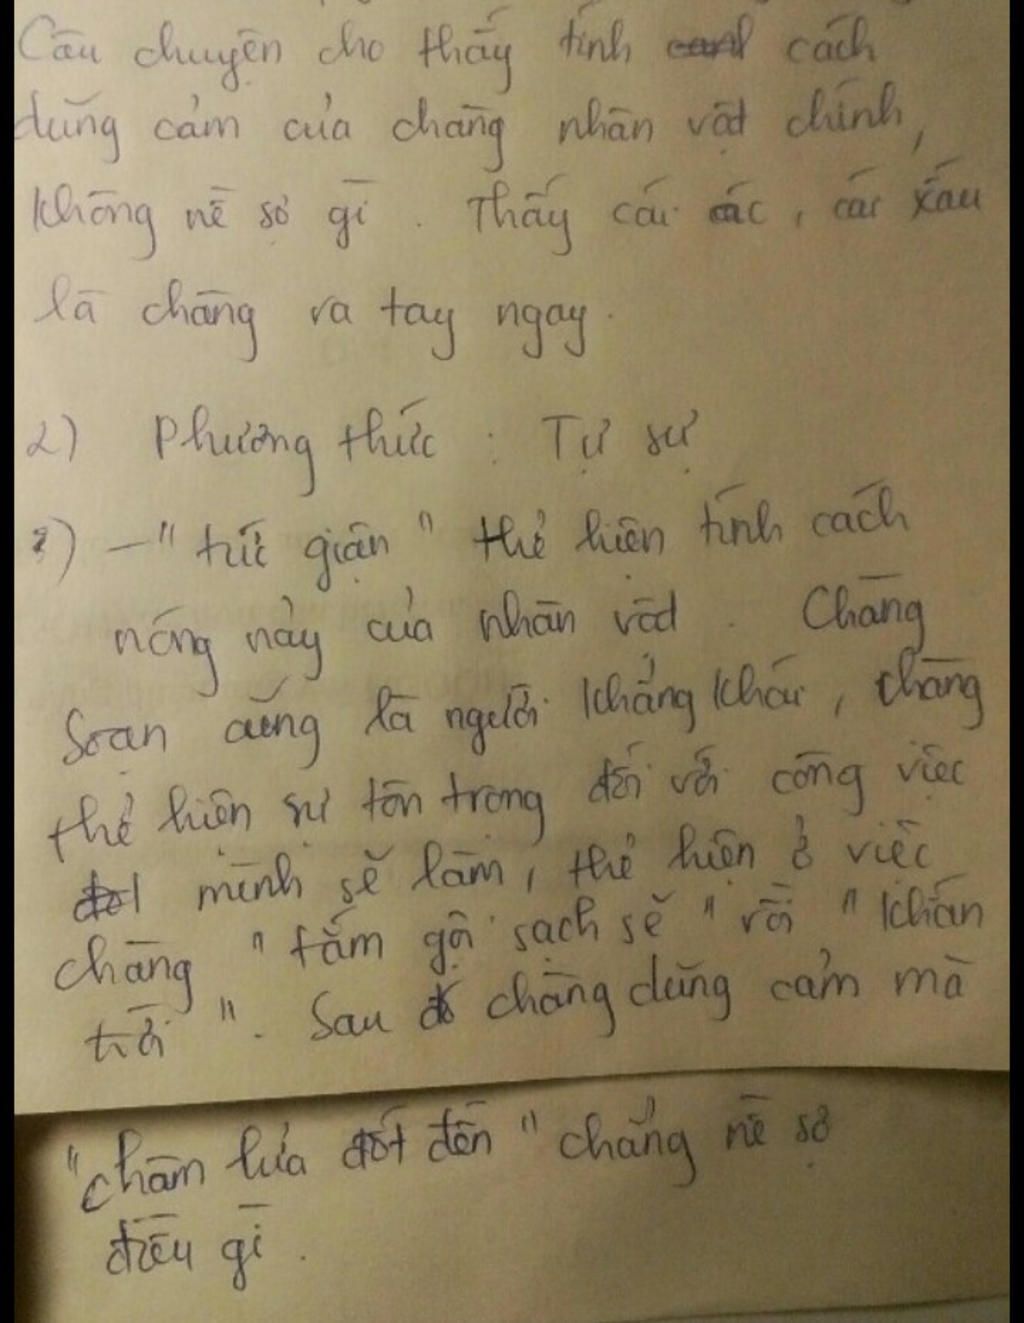 Câu chuyện cho thấy tính cách
dũng cảm của chàng nhân vật chính,
không nề sợ gì. Thấy cái ác, cái xấu
là chàng ra tay ngay.
2) Phương thức: Tự sự
3) - "tức giận" thể hiện tính cách
nóng nảy của nhân vật. Chàng
Soạn cũng là người khảng khái, chàng
thể hiện sự tôn trọng đối với công việc
mình sẽ làm, thể hiện ở việc
chàng "tắm gội sạch sẽ" rồi "khấn
trời". Sau đó chàng dũng cảm mà
"châm lửa đốt đền" chẳng nề sợ
điều gì.